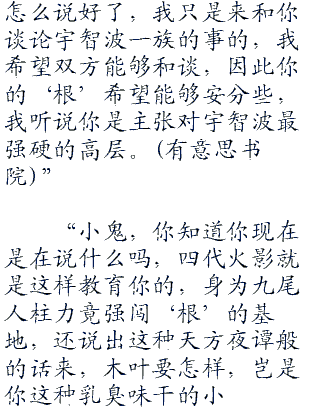 怎么说好了，我只是来和你
谈论宇智波一族的事的，我
希望双方能够和谈，因此你
的‘根’希望能够安分些，
我听说你是主张对宇智波最
强硬的高层。(有意思书
院)”
“小鬼，你知道你现在
是在说什么吗，四代火影就
是这样教育你的，身为九尾
人柱力竟强闯‘根’的基
地，还说出这种天方夜谭般
的话来，木叶要怎样，岂是
你这种乳臭味干的小